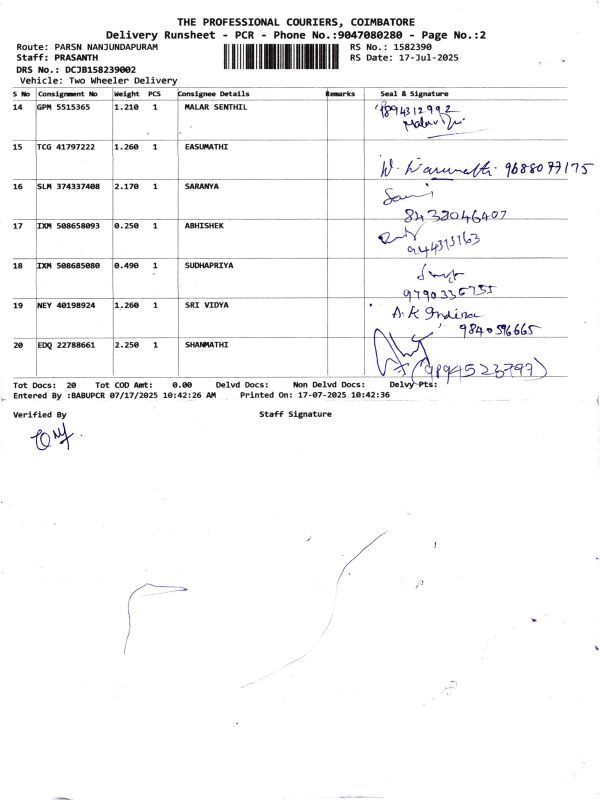 THE PROFESSIONAL COURIERS, COIMBATORE
Delivery Runsheet - PCR - Phone No.:9047080280 - Page No.:2
Route: PARSN NANJUNDAPURAM RS No.: 1582390
Staff: PRASANTH RS Date: 17-Jul-2025
DRS No.: DCJB158239002
Vehicle: Two Wheeler Delivery
S No Consignment No Weight PCS Consignee Details Remarks Seal & Signature
14 GPM 5515365 1.210 1 MALAR SENTHIL 9894312992
15 TCG 41797222 1.260 1 EASUMATHI
9688077175
16 SLM 374337408 2.170 1 SARANYA
8438046407
17 IXM 508658093 0.250 1 ABHISHEK
18 IXM 508685080 0.490 1 SUDHAPRIYA
9790336755
19 NEY 40198924 1.260 1 SRI VIDYA A. K Indira
9840596665
20 EDQ 22788661 2.250 1 SHANMATHI
(9894523797)
Tot Docs: 20 Tot COD Amt: 0.00 Delvd Docs: Non Delvd Docs: Delvy Pts:
Entered By :BABUPCR 07/17/2025 10:42:26 AM Printed On: 17-07-2025 10:42:36
Verified By Staff Signature